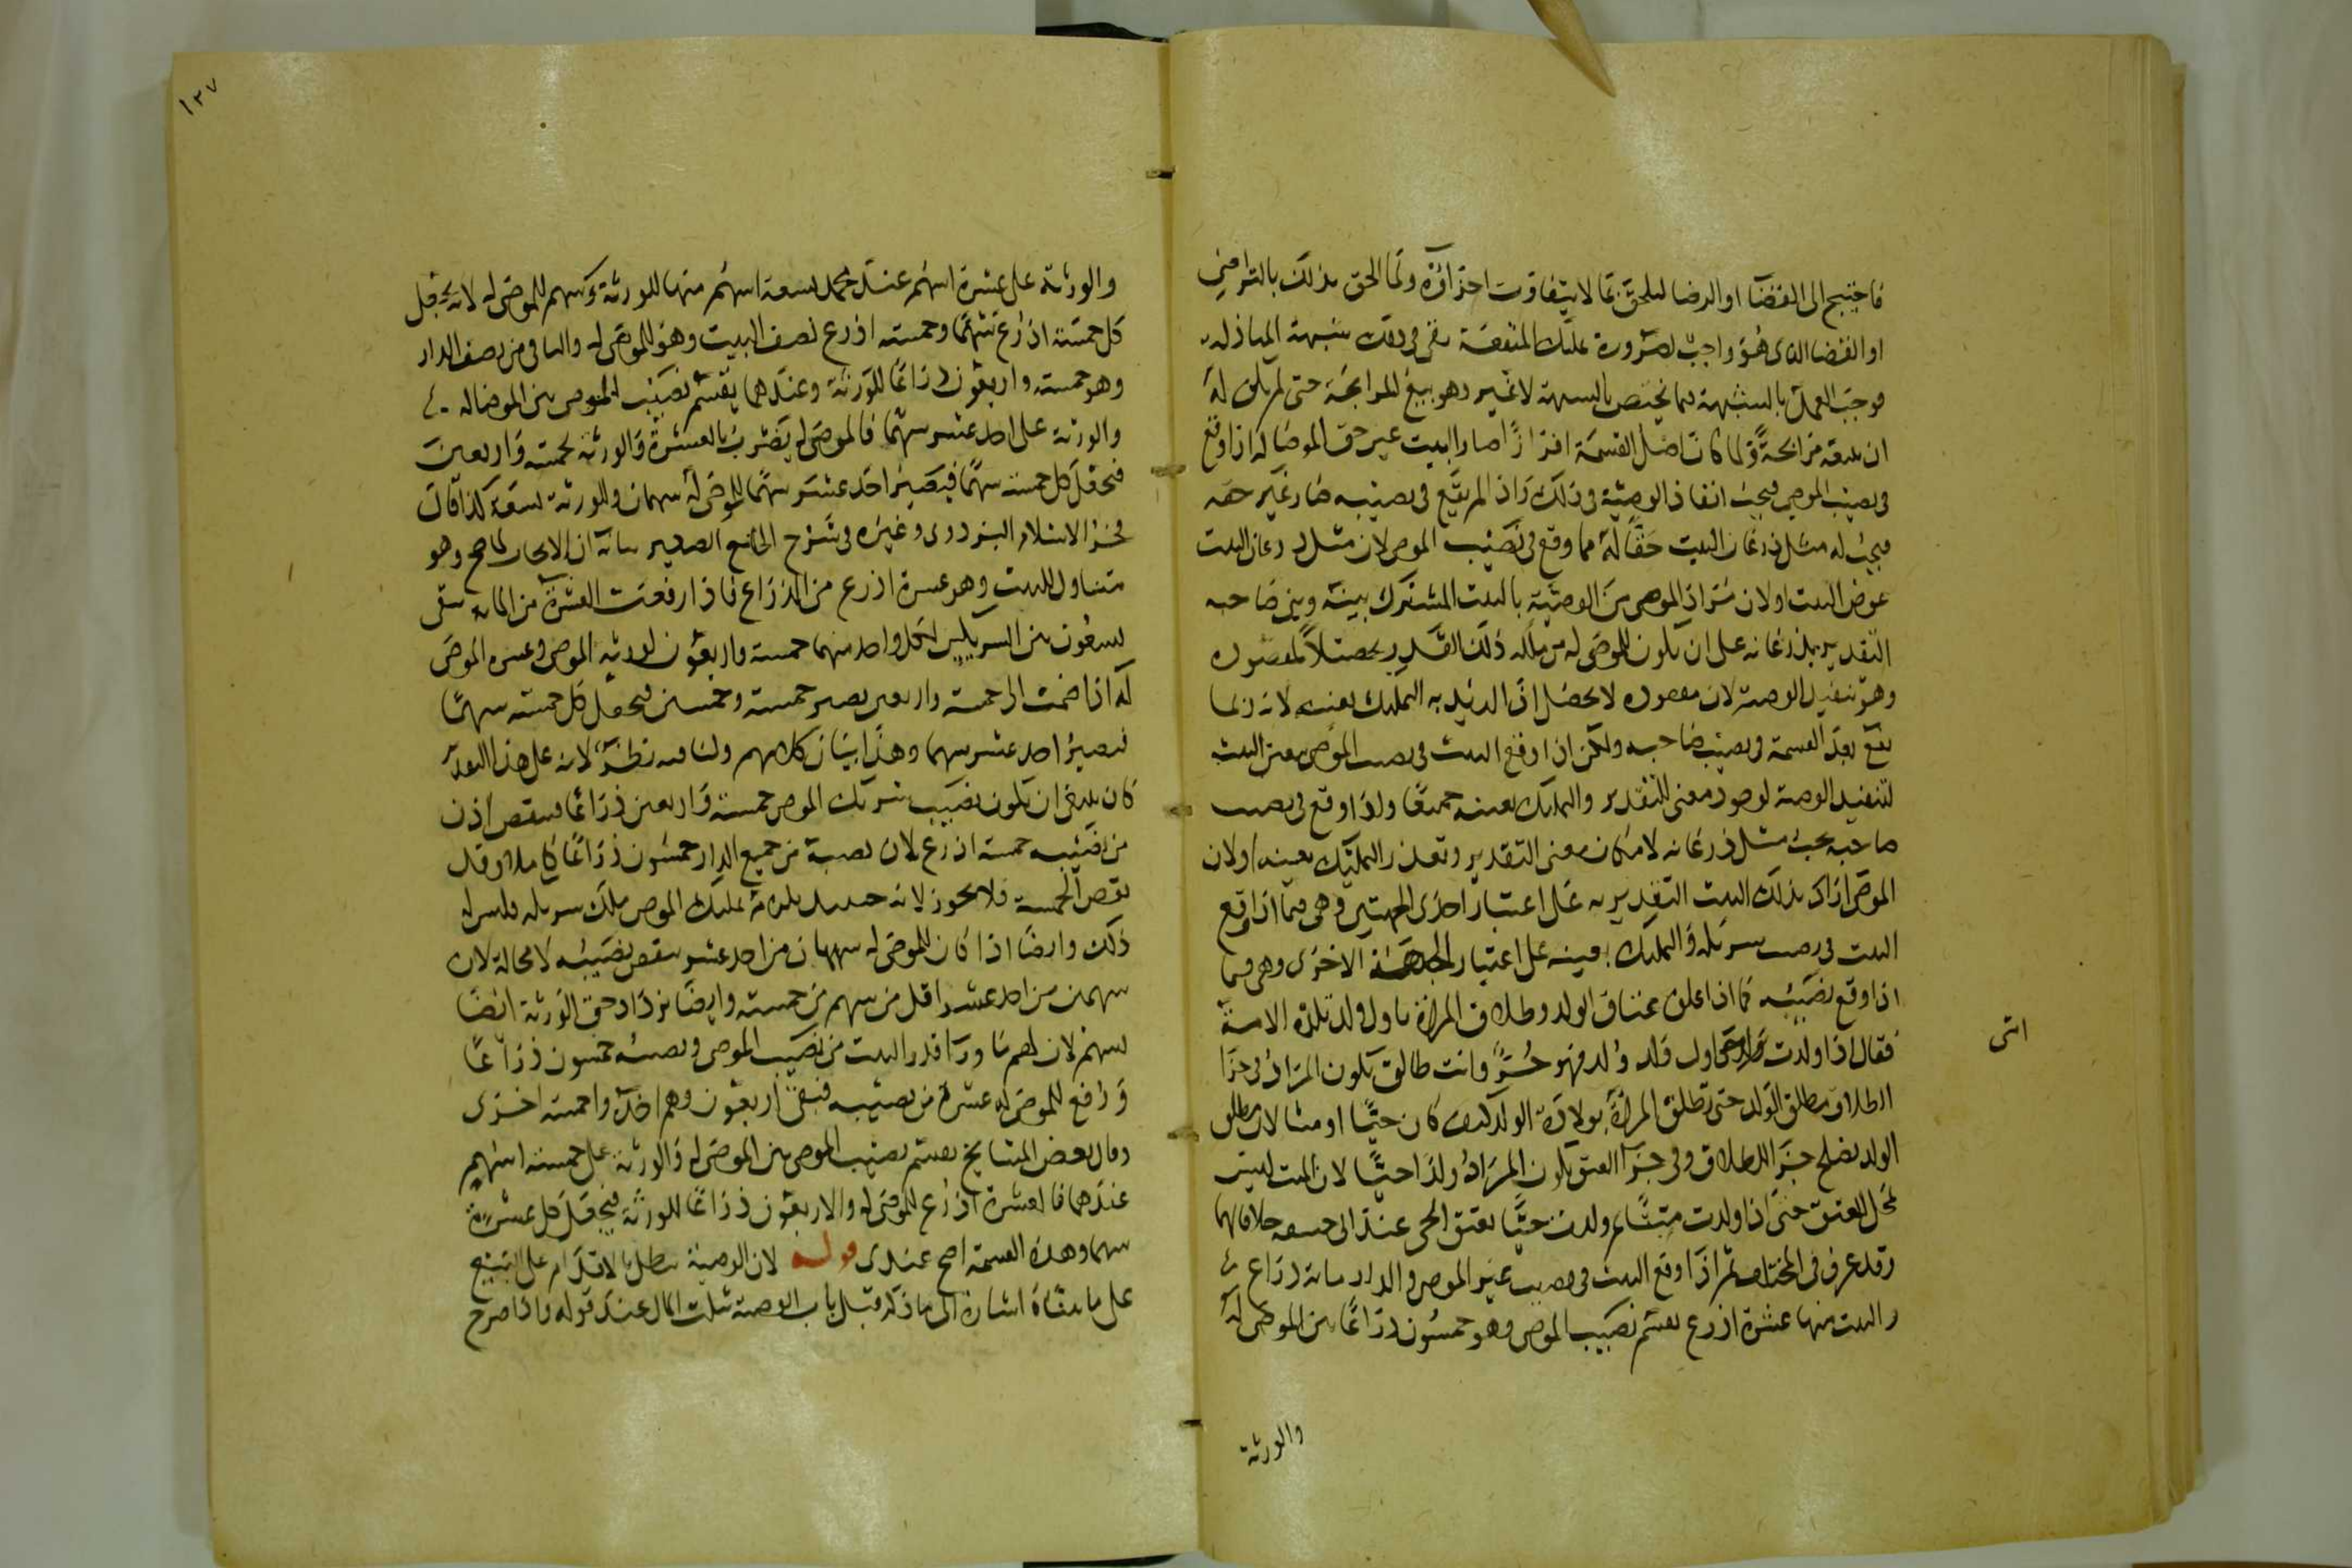 فاحتيج الى القضا او الرضا ليلحق بما لا يتفاوت اجزاؤه ولما الحق بذلك بالتراضي
او القضا الذى هو واجب لضرورة تمليك المنفعة بقى فى ذلك شبهة المبادلة
فوجب العمل بالشبهة فيما يختص بالشبهة لا غير وهو بيع المرابحة حتى لم يكن له
ان يبيعه مرابحة ولما كان اصل القسمة افرازا صار البيت عين حق الموصا له اذا وقع
فى نصيب الموصى فيجب انفاذ الوصية فى ذلك واذا لم يقع فى نصيبه صار غير حقه
فيجب له مثل ذرعان البيت حقا له مما وقع فى نصيب الموصى لان مثل ذرعان البيت
عوض البيت او لان مراد الموصى من الوصية بالبيت المشترك بينه وبين صاحبه
التقدير بذرعانه على ان يكون للموصى له من ملكه ذلك القدر تحصيلا لمقصوده
وهو تنفيذ الوصية لان مقصوده لا يحصل اذا اريد به التمليك بعينه لانه ربما
يقع بعد القسمة فى نصيب صاحبه ولكن اذا وقع البيت فى نصيب الموصى تعين البيت
لتنفيذ الوصية لوجود معنى التقدير والتمليك بعينه جميعا واذا وقع فى نصيب
صاحبه يجب مثل ذرعانه لامكان معنى التقدير وتعذر التمليك بعينه او لان
الموصى اراد بذلك البيت التقدير به على اعتبار احدى الجهتين وهى فيما اذا وقع
البيت فى نصيب شريكه والتمليك بعينه على اعتبار الجهة الاخرى وهى فيما
اذا وقع نصيبه كما اذا علق عتاق الولد وطلاق المراة باول ولد تلده الامة
فقال اذا ولدت اول ولد ولد فهو حر وانت طالق يكون المراد فى جزا
الطلاق مطلق الولد حتى تطلق المراة بولادة الولد كيف كان حيا او ميتا لان مطلق
الولد يصلح جزا للطلاق وفى جزا العتق يكون المراد ولدا حيا لان الميت ليس
بمحل للعتق حتى اذا ولدت ميتا ثم ولدت حيا يعتق الحى عند ابى حنيفة خلافا لهما
وقد عرف فى المختلف ثم اذا وقع البيت فى نصيب غير الموصى والدار مائة ذراع
والبيت منها عشرة اذرع يقسم نصيب الموصى وهو خمسون ذراعا بين الموصى له
انتهى
والورثة
١٣٧
والورثة على عشرة اسهم عند محمد تسعة اسهم منها للورثة وسهم للموصى له لانه يجعل
كل خمسة اذرع سهما وخمسة اذرع نصف البيت وهو للموصى له والباقى من نصف الدار
وهو خمسة واربعون ذراعا للورثة وعندهما يقسم نصيب الموصى بين الموصا له
والورثة على احد عشر سهما فالموصى له يضرب بالعشرة والورثة بخمسة واربعين
فتجعل كل خمسة سهما فيصير احد عشر سهما للموصى له سهمان وللورثة تسعة كذا قال
فخر الاسلام البزدوى وغيره فى شرح الجامع الصغير بيانه ان الايجاب لما صح وهو
متناول للبيت وهو عشرة اذرع من الذراع فاذا رفعت العشرة من المائة بقى
تسعون بين الشريكين لكل واحد منهما خمسة واربعون لورثة الموصى وعشرة الموصى
له اذا ضمت الى خمسة واربعين يصير خمسة وخمسين فيجعل كل خمسة سهما
فيصير احد عشر سهما وهذا بيان كلامهم ولنا فيه نظر لانه على هذا التقدير
كان ينبغى ان يكون نصيب شريك الموصى خمسة واربعين ذراعا فينقص اذن
من نصيبه خمسة اذرع لان نصيبه من جميع الدار خمسون ذراعا كاملا وقد
نقص الخمسة فلا يجوز لانه حينئذ يلزم تمليك الموصى ملك شريكه وليس له
ذلك وايضا اذا كان للموصى له سهمان من احد عشر ينقص نصيبه لا محالة لان
سهمين من احد عشر اقل من سهم من خمسة وايضا يزداد حق الورثة ايضا
بسهم لان لهم ما ورا قدر البيت من نصيب الموصى ونصيبه خمسون ذراعا
ورفع للموصى له عشرة من نصيبه فبقى اربعون وهم اخذوا خمسة اخرى
وقال بعض المشايخ يقسم نصيب الموصى بين الموصى له والورثة على خمسة اسهم
عندهما فالعشرة اذرع للموصى له والاربعون ذراعا للورثة فيجعل كل عشرة
سهما وهذه القسمة اصح عندى قوله لان الوصية تبطل بالاقدام على البيع
على ما بيناه اشارة الى ما ذكر قبل باب الوصية بثلث المال عند قوله واذا صرح